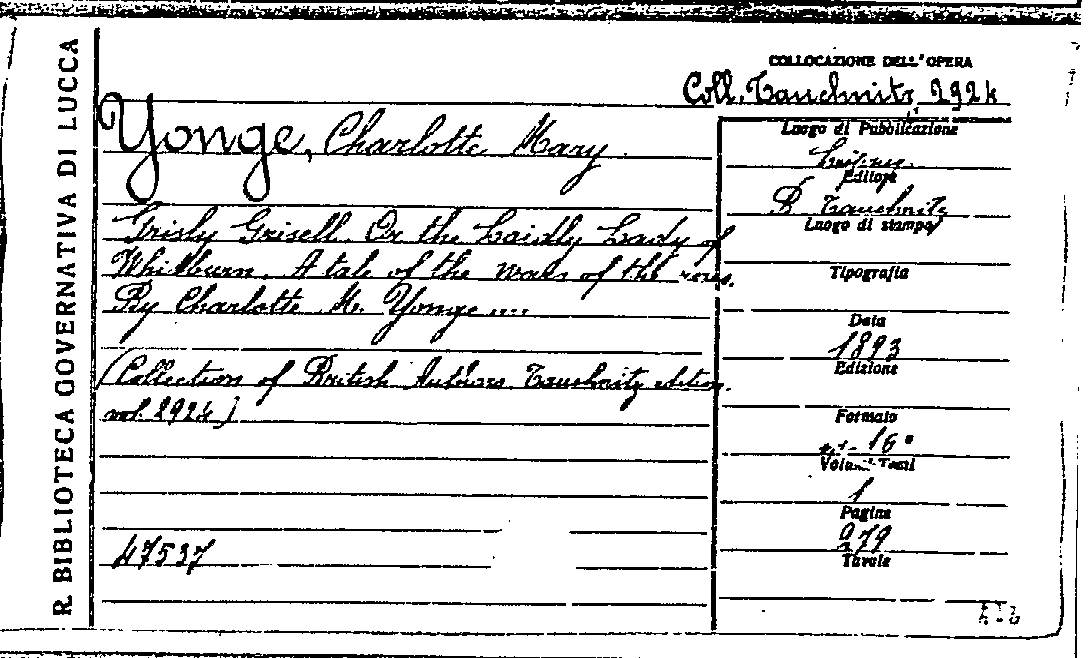 R. BIBLIOTECA GOVERNATIVA DI LUCCA
COLLOCAZIONE DELL'OPERA
Coll. Tauchnitz, 2924
Yonge, Charlotte Mary.
Grisly Grisell. Or the Laidly Lady of
Whitburn. A tale of the wars of the roses.
By Charlotte M. Yonge ....
(Collection of British Authors Tauchnitz edition.
vol. 2924)
47537
Luogo di Pubblicazione
Editore
B. Tauchnitz
Luogo di stampa
Tipografia
Data
1893
Edizione
Formato
16°
Volumi-Tomi
1
Pagine
279
Tavole